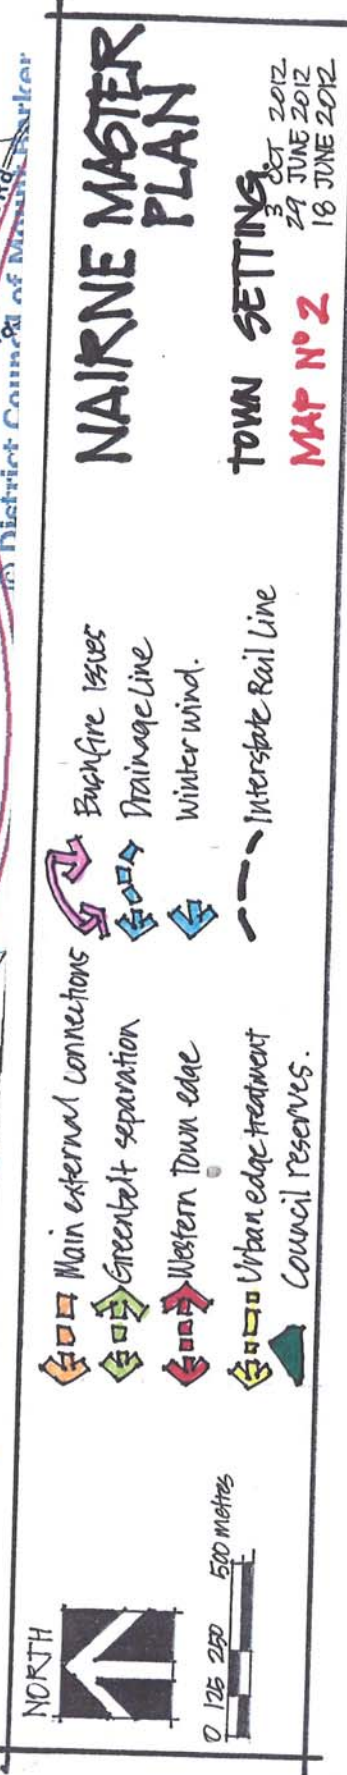 © District Council of Mount Barker
NORTH
0 125 250 500 metres
Main external connections
Greenbelt separation
Western Town edge
Urban edge treatment
Council reserves.
Bushfire Issues
Drainage Line
Winter wind.
Interstate Rail Line
NAIRNE MASTER
PLAN
TOWN SETTING.
3 OCT 2012
29 JUNE 2012
18 JUNE 2012
MAP Nº 2